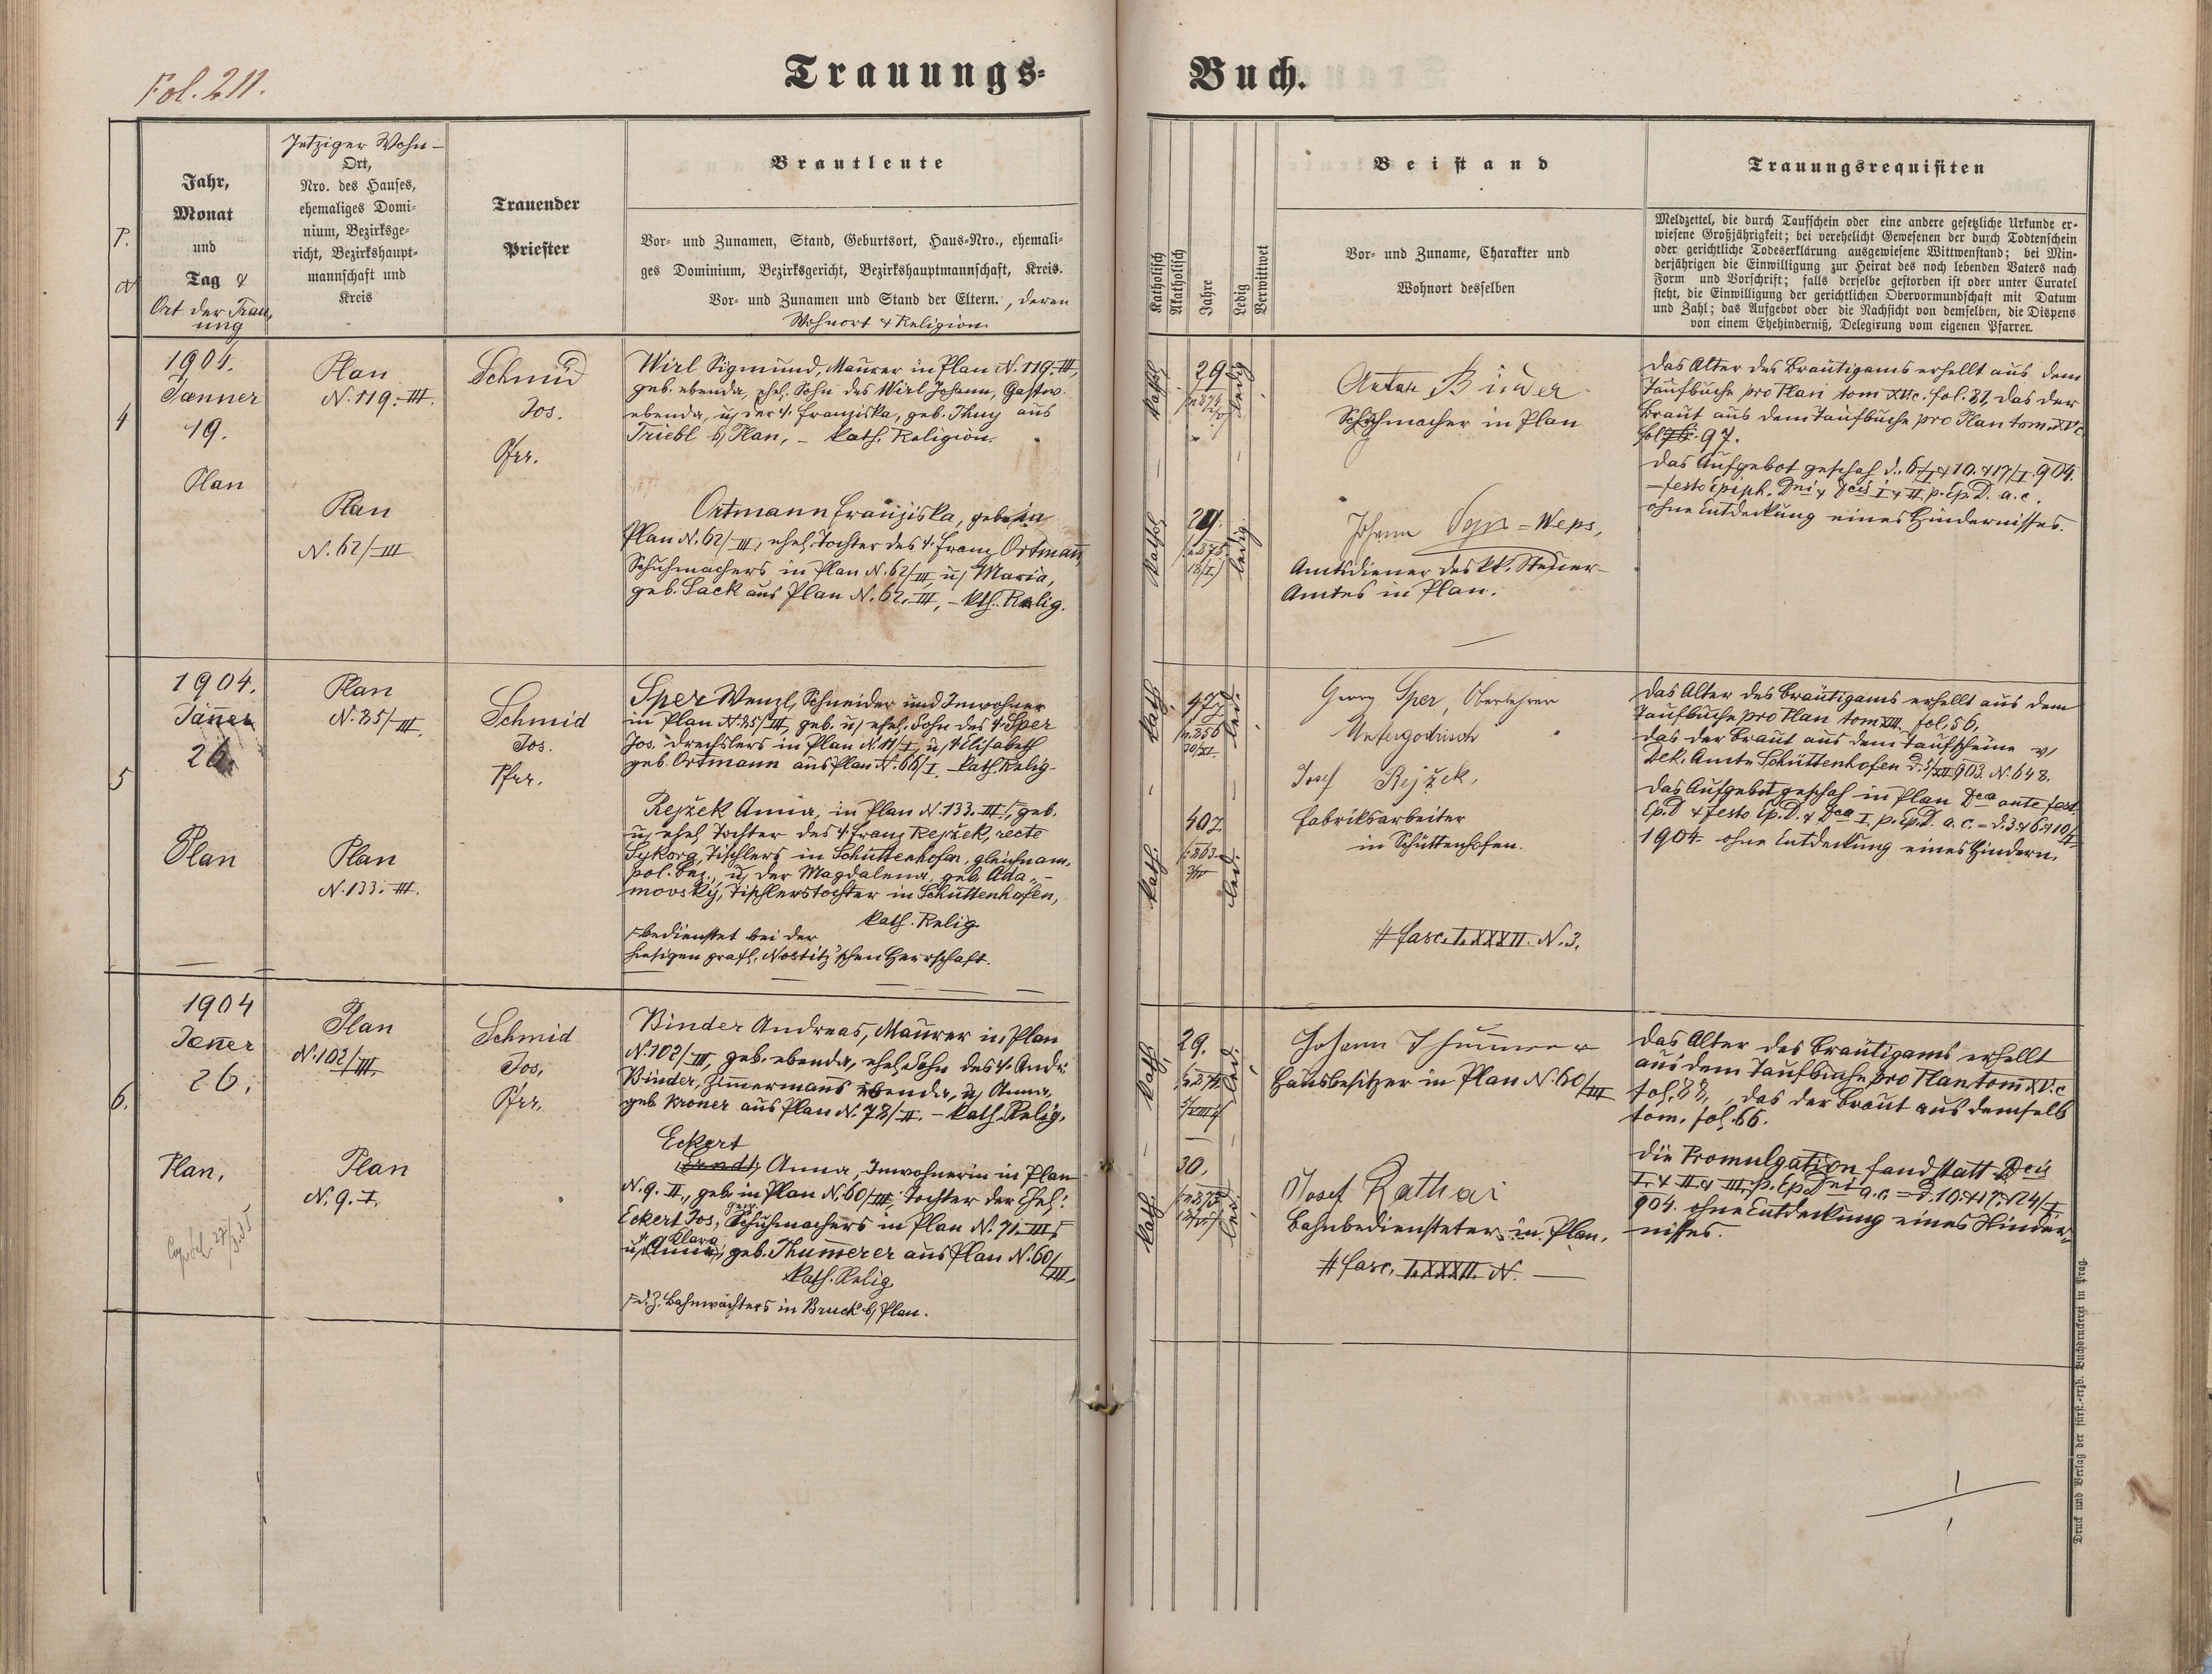 Fol. 211.
Trauungs-Buch.
P.
N
Jahr,
Monat
und
Tag &
Ort der Trau-
ung
Jetziger Wohn-
Ort,
Nro. des Hauses,
ehemaliges Domi-
nium, Bezirksge-
richt, Bezirkshaupt-
mannschaft und
Kreis
Trauender
Priester
Brautleute
Vor- und Zunamen, Stand, Geburtsort, Haus-Nro., ehemali-
ges Dominium, Bezirksgericht, Bezirkshauptmannschaft, Kreis.
Vor- und Zunamen und Stand der Eltern., deren
Wohnort & Religion.
Katholisch
Akatholisch
Jahre
Ledig
Verwittwet
Beistand
Vor- und Zuname, Charakter und
Wohnort desselben
Trauungsrequisiten
Meldzettel, die durch Taufschein oder eine andere gesetzliche Urkunde er-
wiesene Großjährigkeit; bei verehelicht Gewesenen der durch Todtenschein
oder gerichtliche Todeserklärung ausgewiesene Wittwenstand; bei Min-
derjährigen die Einwilligung zur Heirat des noch lebenden Vaters nach
Form und Vorschrift; falls derselbe gestorben ist oder unter Curatel
steht, die Einwilligung der gerichtlichen Obervormundschaft mit Datum
und Zahl; das Aufgebot oder die Nachsicht von demselben, die Dispens
von einem Ehehinderniß, Delegirung vom eigenen Pfarrer.
4
1904.
Jænner
19.
Plan
Plan
N. 119.-III.
Plan
N. 62/III
Schmid
Jos.
Pfrr.
Wirl Sigmund, Maurer in Plan N. 119.-III,
geb. ebenda, ehel. Sohn des Wirl Johann, Gastw.
ebenda, u. der †. Franziska, geb. Thuy aus
Triebl b/ Plan, – kath. Religion.
Ortmann Franziska, geb. in
Plan N. 62/III, ehel. Tochter des †. Franz Ortmann,
Schuhmachers in Plan N. 62/III, u/ Maria,
geb. Sack aus Plan N. 62.-III, – kth. Relig.
kathol.
29
ledig
kathol
29.
ledig
Anton Binder
Schuhmacher in Plan
Johann = Weps,
Amtsdiener des kk. Steuer-
Amtes in Plan.
Das Alter des Bräutigams erhellt aus dem
Taufbuche pro Plan tom XV.c. fol. 81, das der
Braut aus dem Taufbuche pro Plan tom. XV.c
fol. 97.
Das Aufgebot geschah d. 6/I & 10. & 17/I. 904.
– festo Epiph. Dni & Dcis I & II p. Ep. D. a. c.
ohne Entdeckung eines Hindernisses.
5
1904.
Jänner
26.
Plan
Plan
N. 85/III.
Plan
N. 133.-III.
Schmid
Jos.
Pfrr.
Sper Wenzl, Schneider und Inwohner
in Plan N. 85/III, geb. u/ ehel. Sohn des †. Sper
Jos. Drechslers in Plan N. 11/I, u/ † Elisabeth
geb. Ortmann aus Plan N. 66/I – kath. Relig.
Rejžek Anna, in Plan N. 133.-III, geb.
u/ ehel. Tochter des †. Franz Rejžek, recte
Sykora, Tischlers in Schüttenhofen, gleichnam.
pol. Bez., u/ der Magdalena, geb. Ada-
movský, Tischlerstochter in Schüttenhofen,
kath. Relig.
bedienstet bei der
hiesigen gräfl. Nostitz'schen Herrschaft.
kath.
47
led.
kath.
40
led.
Georg Sper, Oberlehrer
Untergodrisch
Josef Rejžek,
Fabriksarbeiter
in Schüttenhofen.
# fasc. LXXXII. N. 3.
Das Alter des Bräutigams erhellt aus dem
Taufbuche pro Plan tom XIII. fol. 56,
das der Braut aus dem Taufscheine v/
Dek. Amte Schüttenhofen d. 5/XII 903. N. 648.
Das Aufgebot geschah in Plan Dca ante fest.
Ep. D & festo Ep. D. & Dca I. p. Ep. D. a. c. = d. 3. & 6. & 10/I
1904. ohne Entdeckung eines Hindern.
6.
1904
Jänner
26.
Plan.
Plan
N. 102/III.
Plan
N. 9.-I.
Schmid
Jos.
Pfrr.
Binder Andreas, Maurer in Plan
N. 102/III, geb. ebenda, ehel. Sohn des †. Andr.
Binder, Zimmermanns ebenda, u/ Anna,
geb. Kroner aus Plan N. 78/II. – kath. Relig.
Eckert
Anna, Inwohnerin in Plan
N. 9. II, geb. in Plan N. 60/III, Tochter der Ehel.
Eckert Jos, gew. Schuhmachers in Plan N. 71.-III
u/ Klara, geb. Thummerer aus Plan N. 60/III.
kath. Relig.
d. Z. Bahnwächters in Bruck b/ Plan.
kath.
29.
led.
kath.
30.
led.
Johann Thummerer
Hausbesitzer in Plan N. 60/III
Josef Rathai
Bahnbediensteter in Plan.
# fasc. LXXXII. N. —
Das Alter des Bräutigams erhellt
aus dem Taufbuche pro Plan tom XV.c
fol. 88, das der Braut aus demselb
tom. fol. 66.
Die Promulgation fand statt Dcis
I. & II. & III. p. Ep. Dni a. c. = d. 10. & 17. & 24/I
904. ohne Entdeckung eines Hinder-
nisses.
Druck und Verlag der fürst.-erzb. Buchdruckerei in Prag.